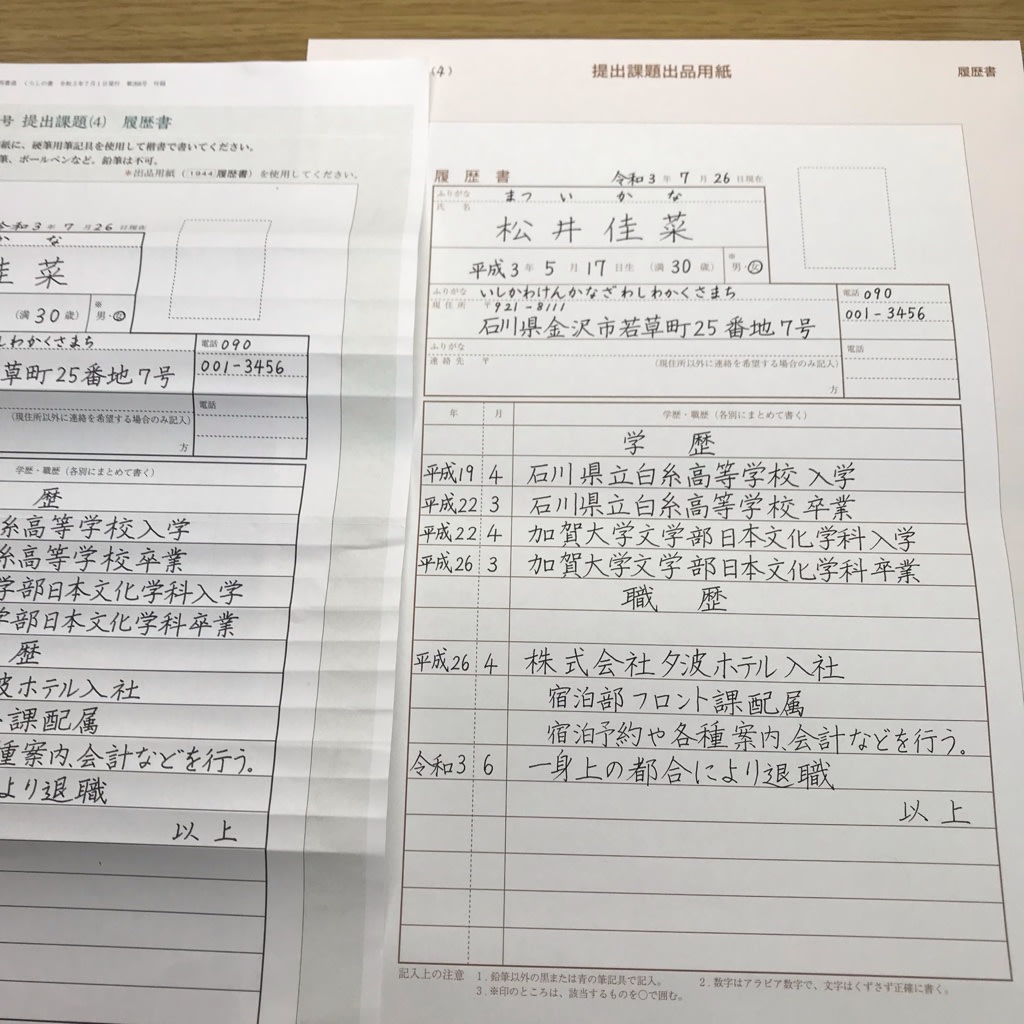 号 提出課題(4) 履歴書
紙に、硬筆用筆記具を使用して楷書で書いてください。
筆、ボールペンなど、鉛筆は不可。
※出品用紙(1944履歴書)を使用してください。
令和3年7月26日現在
か な
佳 菜
(満30歳) ※男・女
しわかくさまち
電話 090
草町25番地7号
001-3456
電話
(現住所以外に連絡を希望する場合のみ記入)
方
学歴・職歴(各別にまとめて書く)
歴
糸高等学校入学
糸高等学校卒業
学部日本文化学科入学
学部日本文化学科卒業
歴
波ホテル入社
ト課配属
種案内、会計などを行う。
より退職
以上
(4) 提出課題出品用紙 履歴書
履歴書 令和3年7月26日現在
ふりがな まつ い か な
氏名 松井佳菜
平成3年5月17日生 (満30歳) ※男・女
ふりがな いしかわけんかなざわしわかくさまち
電話 090
現住所 〒921-8111
001-3456
石川県金沢市若草町25番地7号
ふりがな
電話
連絡先 〒 (現住所以外に連絡を希望する場合のみ記入)
方
年 月 学歴・職歴(各別にまとめて書く)
学 歴
平成19 4 石川県立白糸高等学校入学
平成22 3 石川県立白糸高等学校卒業
平成22 4 加賀大学文学部日本文化学科入学
平成26 3 加賀大学文学部日本文化学科卒業
職 歴
平成26 4 株式会社夕波ホテル入社
宿泊部フロント課配属
宿泊予約や各種案内、会計などを行う。
令和3 6 一身上の都合により退職
以上
記入上の注意 1.鉛筆以外の黒または青の筆記具で記入。 2.数字はアラビア数字で、文字はくずさず正確に書く。
3.※印のところは、該当するものを○で囲む。